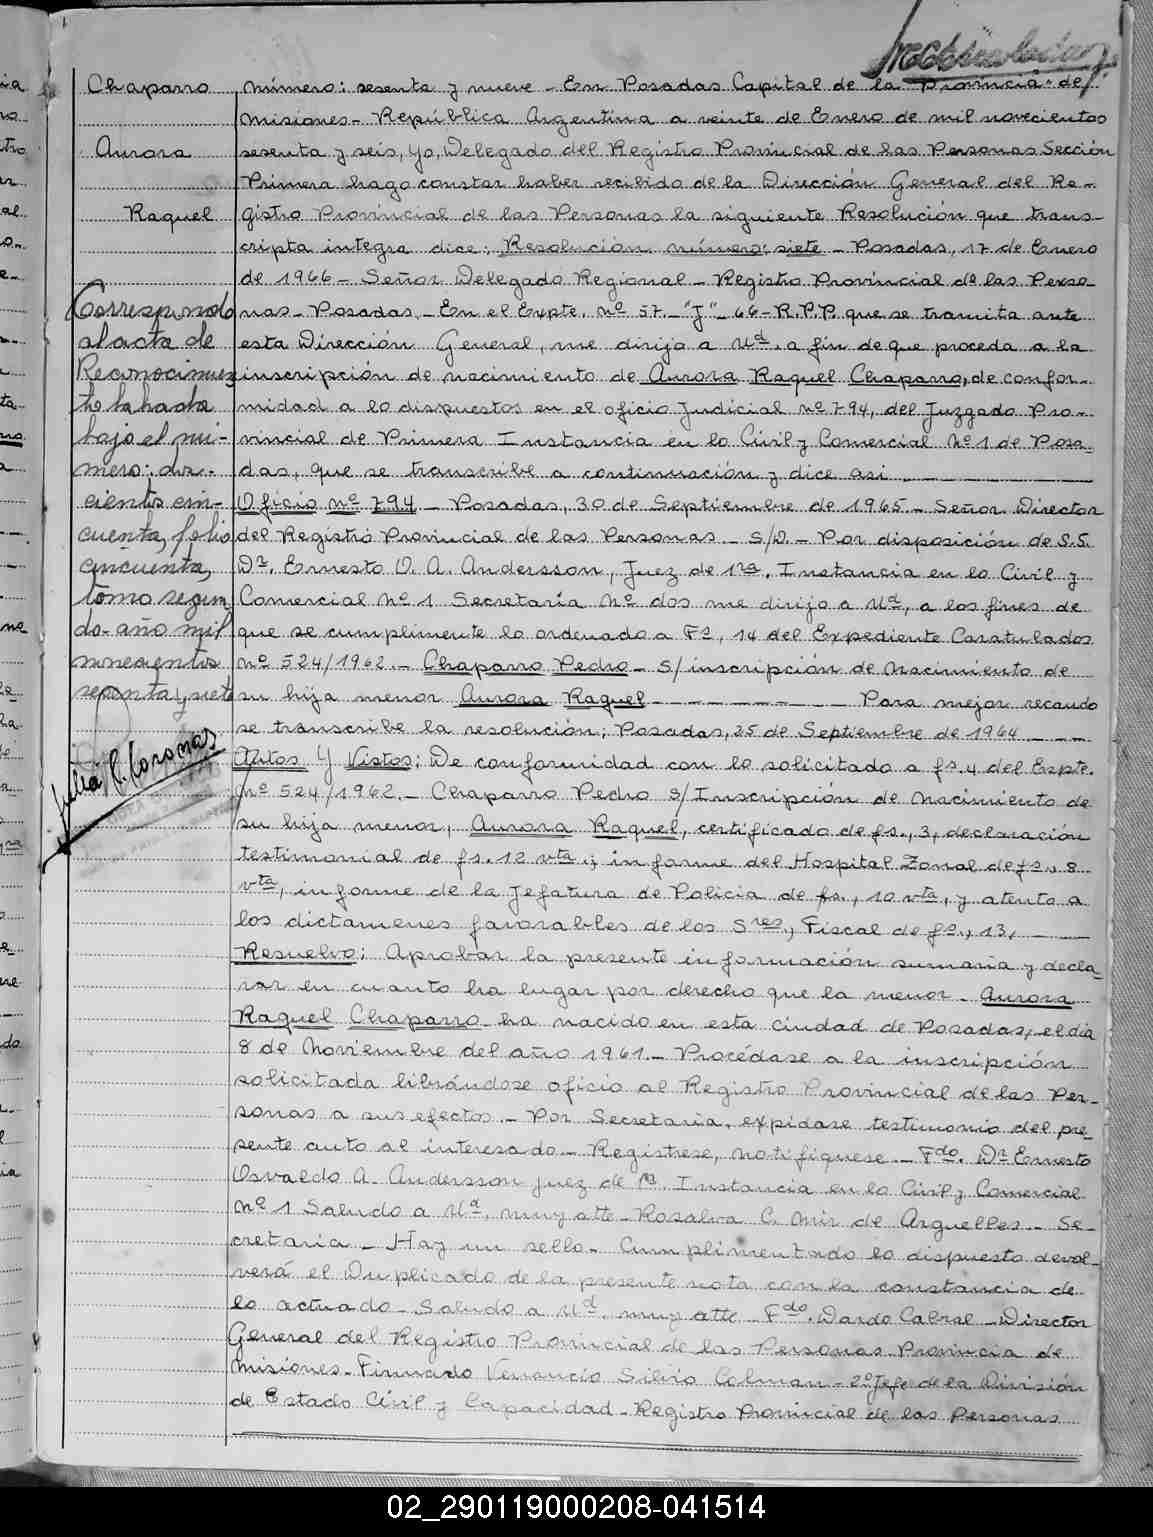 Chaparro
Aurora
Raquel
Corresponde
al acta de
Reconocimien
to labrada
bajo el nú-
mero: dos-
cientos cin-
cuenta, folio
cincuenta,
tomo segun
do- año mil
novecientos
sesenta y siete
número: sesenta y nueve - En Posadas Capital de la Provincia de
Misiones - República Argentina a veinte de Enero de mil novecientos
sesenta y seis, yo, Delegado del Registro Provincial de las Personas Sección
Primera hago constar haber recibido de la Dirección General del Re-
gistro Provincial de las Personas la siguiente Resolución que trans-
cripta integra dice: Resolución número: siete - Posadas, 17 de Enero
de 1966 - Señor Delegado Regional - Registro Provincial de las Perso-
nas - Posadas - En el Expte. nº 57 - "J" - 66 - R.P.P. que se tramita ante
esta Dirección General, me dirijo a Ud. a fin de que proceda a la
inscripción de nacimiento de Aurora Raquel Chaparro, de confor-
midad a lo dispuestos en el oficio Judicial nº 794, del Juzgado Pro-
vincial de Primera Instancia en lo Civil y Comercial Nº 1 de Posa-
das, que se transcribe a continuación y dice asi
Oficio nº 794 - Posadas, 30 de Septiembre de 1965 - Señor Director
del Registro Provincial de las Personas - S/D. - Por disposición de S.S.
Dr. Ernesto O. A. Andersson, Juez de 1ra. Instancia en lo Civil y
Comercial Nº 1 Secretaría Nº dos me dirijo a Ud, a los fines de
que se cumplimente lo ordenado a Fº, 14 del Expediente Caratulados
nº 524/1962. - Chaparro Pedro - S/ inscripción de Nacimiento de
su hija menor Aurora Raquel - - - - - - - - Para mejor recaudo
se transcribe la resolución; Posadas, 25 de Septiembre de 1964 - - -
Autos Y Vistos: De conformidad con lo solicitado a fs. 4 del Expte.
Nº 524/1962. - Chaparro Pedro S/ Inscripción de Nacimiento de
su hija menor, Aurora Raquel, certificado de fs., 3, declaración
testimonial de fs. 12 vta; informe del Hospital Zonal de fs., 8
vta, informe de la Jefatura de Policia de fs., 10 vta, y atento a
los dictamenes favorables de los Sres., Fiscal de fs., 13,
Resuelvo: Aprobar la presente información sumaria y decla-
rar en cuanto ha lugar por derecho que la menor - Aurora
Raquel Chaparro ha nacido en esta ciudad de Posadas, el día
8 de Noviembre del año 1961. - Procédase a la inscripción
solicitada librándose oficio al Registro Provincial de las Per-
sonas a sus efectos. - Por Secretaria, expidase testimonio del pre-
sente auto al interesado - Registrese, notifiquese - Fdo. Dr Ernesto
Osvaldo A. Andersson Juez de 1ra Instancia en lo Civil y Comercial
Nº 1 Saludo a Ud. muy atte - Rosalva C. Mir de Arguelles - Se-
cretaria - Hay un sello - Cumplimentado lo dispuesto devol-
verá el Duplicado de la presente nota con la constancia de
lo actuado - Saludo a Ud. muy atte Fdo. Dardo Cabral - Director
General del Registro Provincial de las Personas Provincia de
Misiones - Firmado Venancio Silvio Colman - 2º Jefe de la División
de Estado Civil y Capacidad - Registro Provincial de las Personas
02_290119000208-041514